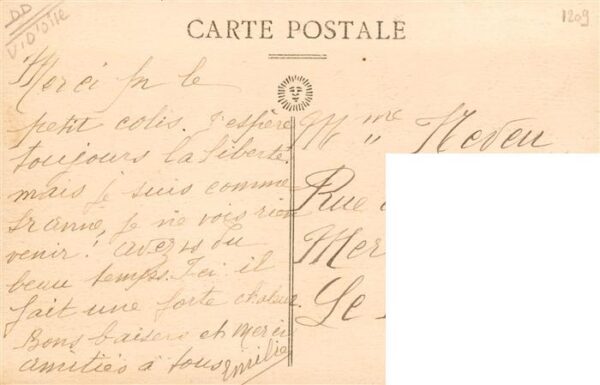 DD
VIOLSIE
1209
CARTE POSTALE
Merci pr le
petit colis. J'espère
toujours la liberté.
mais je suis comme
sr anne, je ne vois rien
venir! avez vs du
beau temps. Ici il
fait une forte chaleur
Bons baisers et Merci
amitiés à tous Emilie
Mme Neveu
Rue
Mer
Le